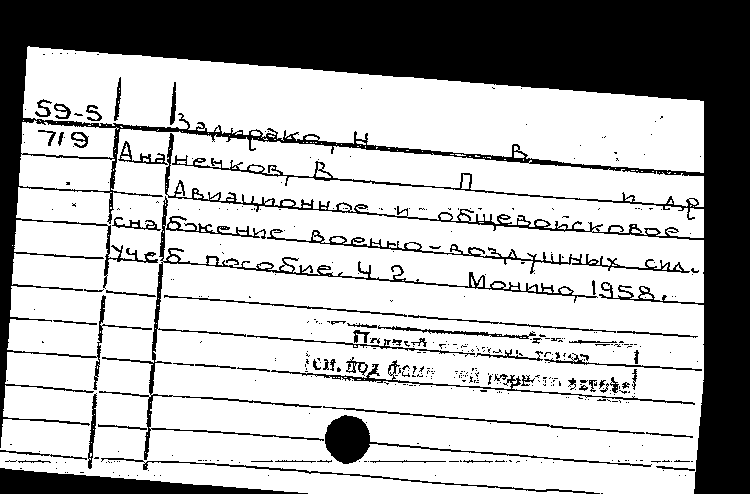 59-5 Задирако, Н В
719
Ананенков, В П и др
Авиационное и общевойсковое
снабжение военно-воздушных сил.
Учеб. пособие. Ч 2. Монино, 1958.
Полный перечень томов
см. под фамилией первого автора